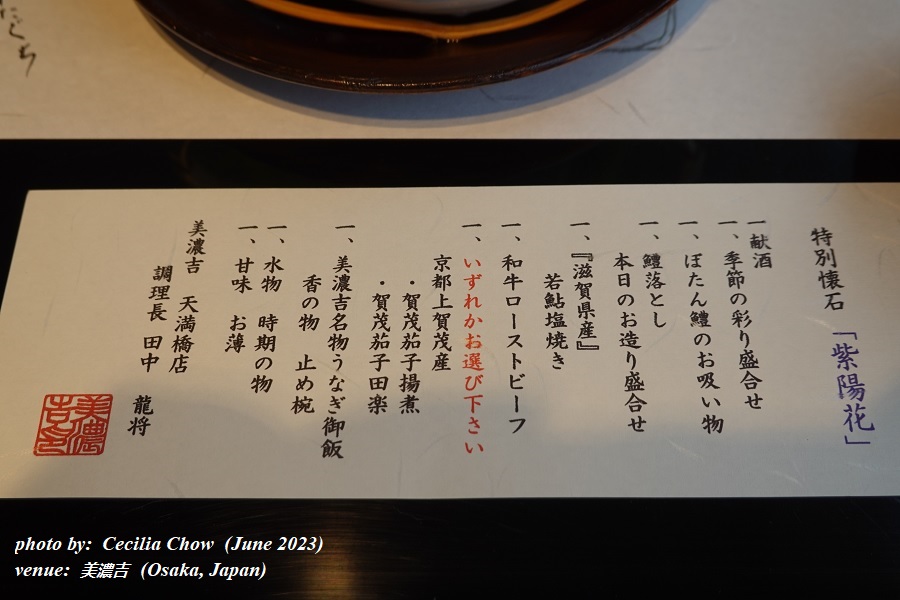 特別懐石 「紫陽花」
一献酒
一、季節の彩り盛合せ
一、ぼたん鱧のお吸い物
一、鱧落とし
本日のお造り盛合せ
一、『滋賀県産』
若鮎塩焼き
一、和牛ローストビーフ
一、いずれかお選び下さい
京都上賀茂産
・賀茂茄子揚煮
・賀茂茄子田楽
一、美濃吉名物うなぎ御飯
香の物 止め椀
一、水物 時期の物
一、甘味 お薄
美濃吉 天満橋店
調理長 田中 龍将
美濃吉
photo by: Cecilia Chow (June 2023)
venue: 美濃吉 (Osaka, Japan)